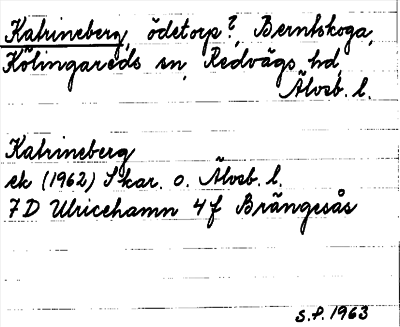 Katrineberg, ödetorp?, Berntskoga,
Kölingareds sn, Redvägs hd,
Älvsb. l.
Katrineberg
ek (1962) Skar. o. Älvsb. l.
7D Ulricehamn 4f Brängesås
S.F. 1963